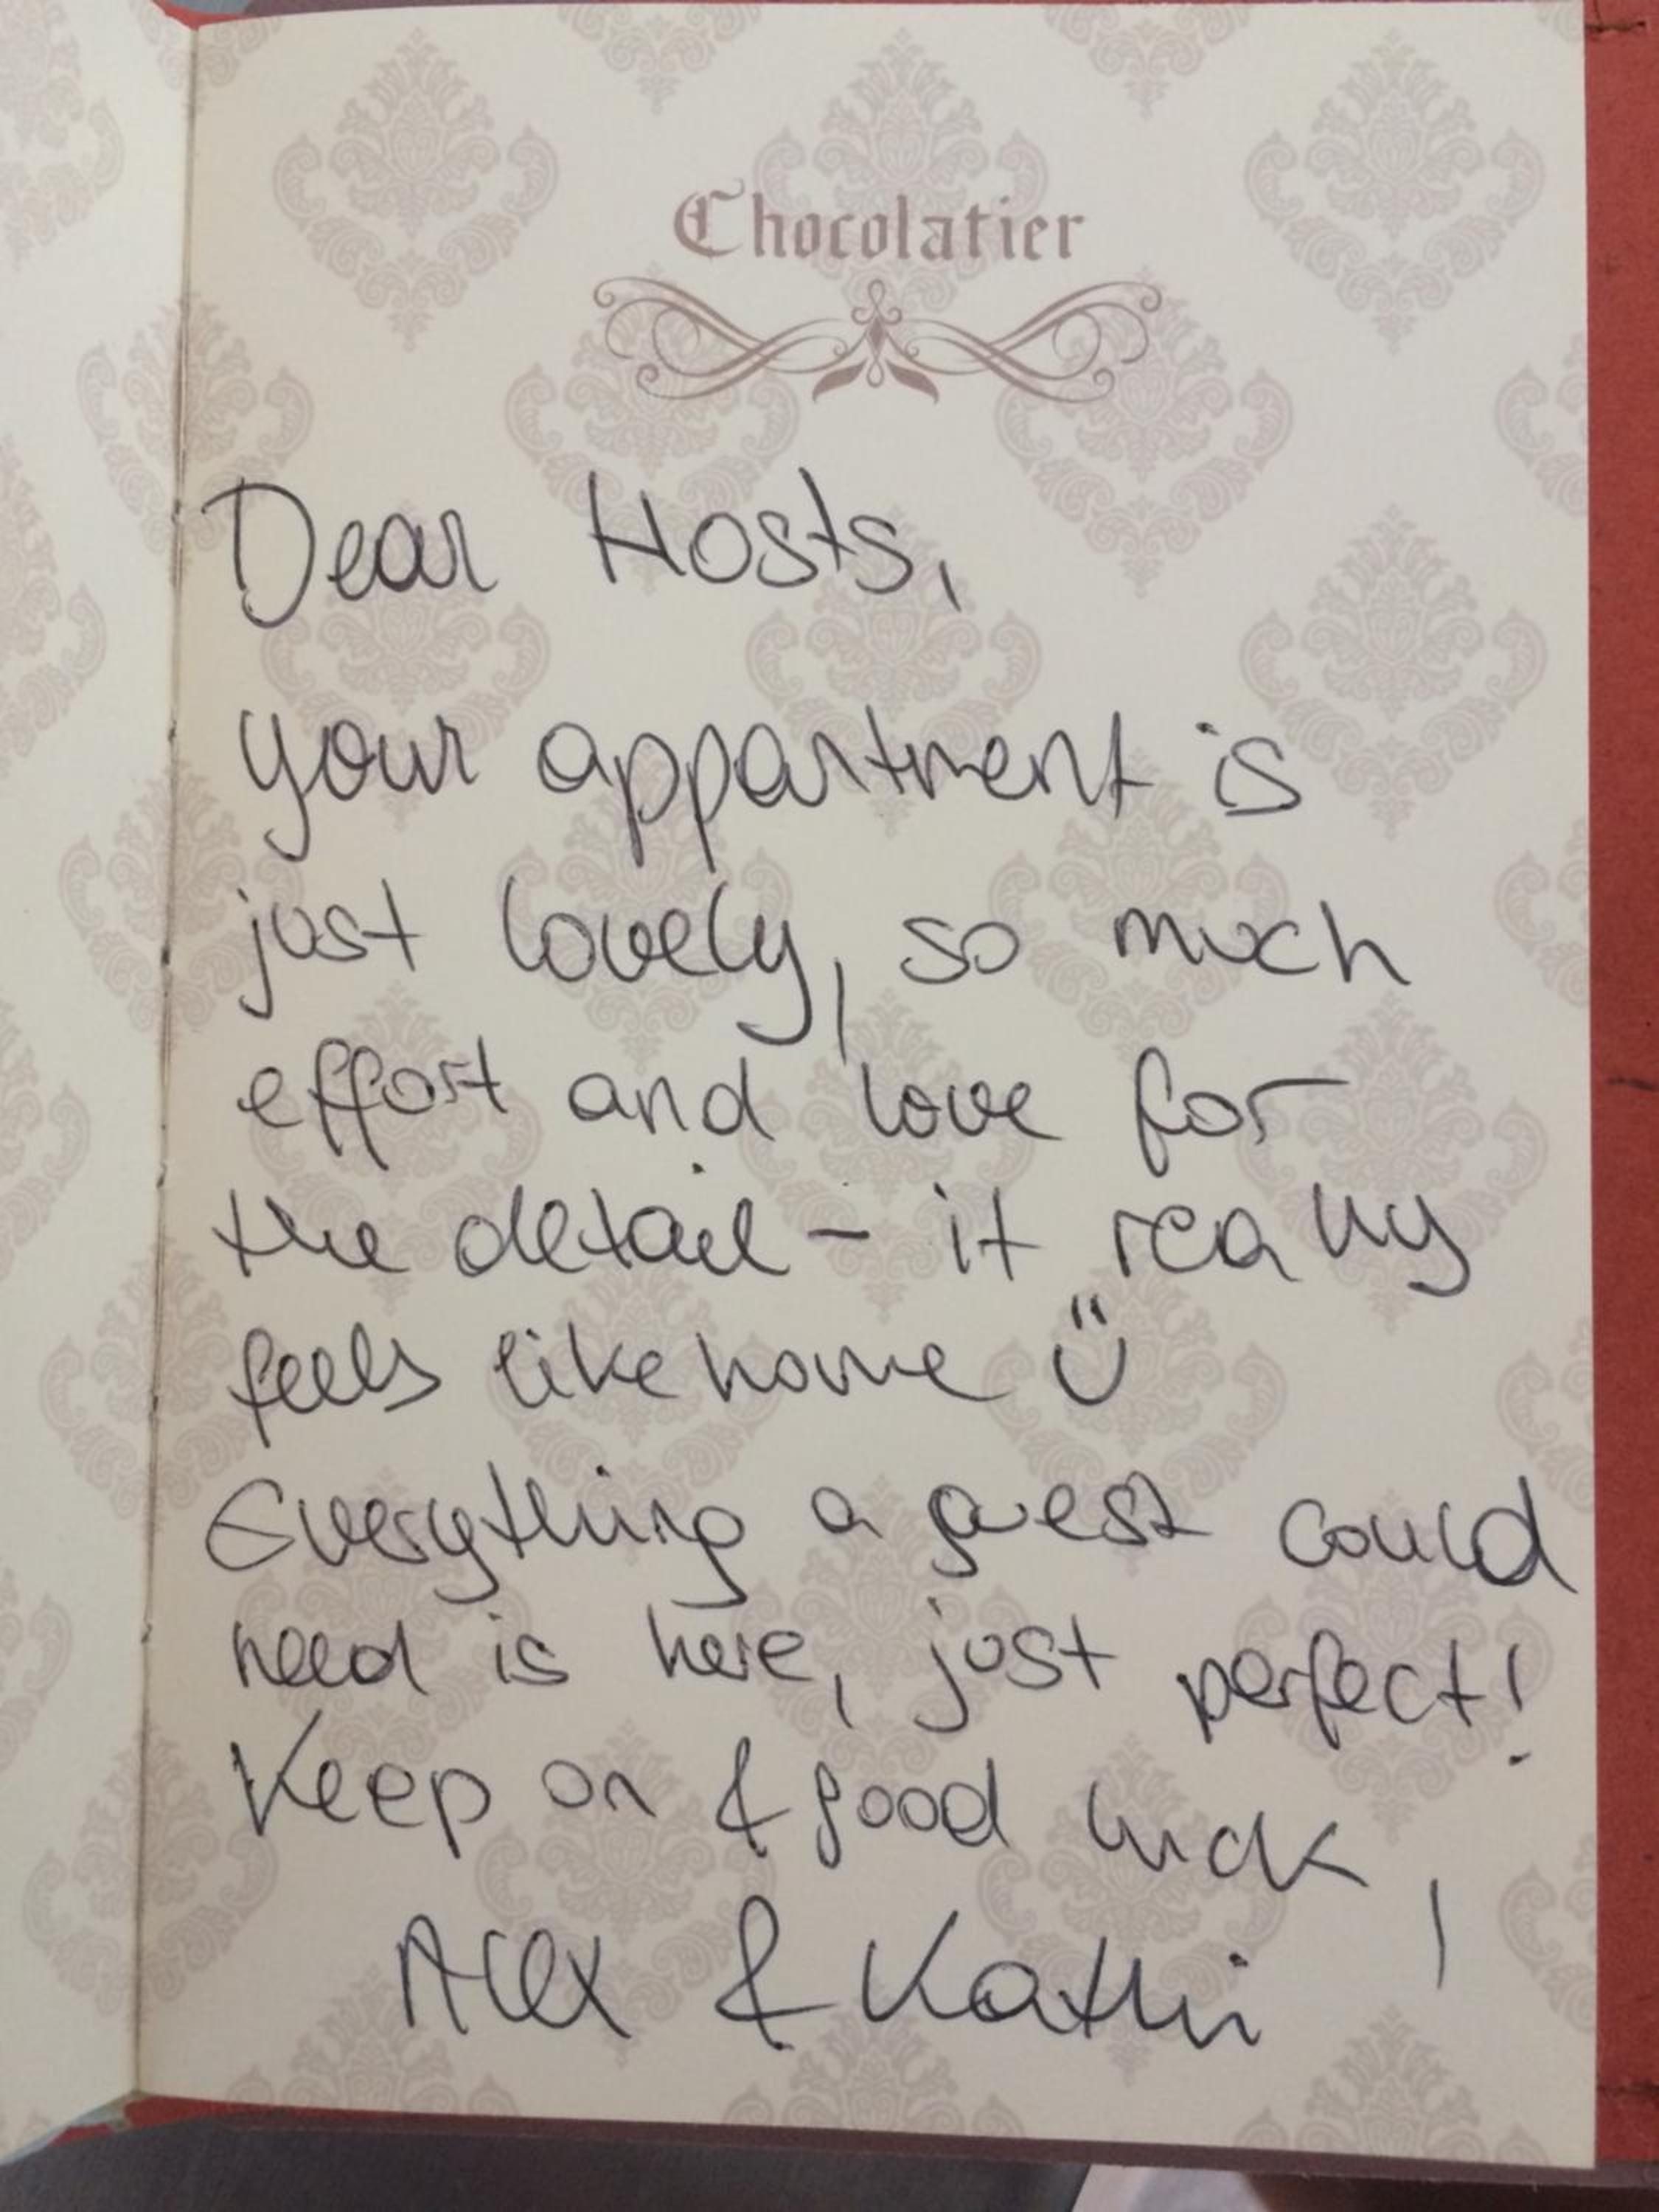 Chocolatier
Dear Hosts,
your appartment is
just lovely, so much
effort and love for
the detail - it really
feels like home ü
Everything a guest could
need is here, just perfect!
Keep on & good luck,
Alex & Kathi